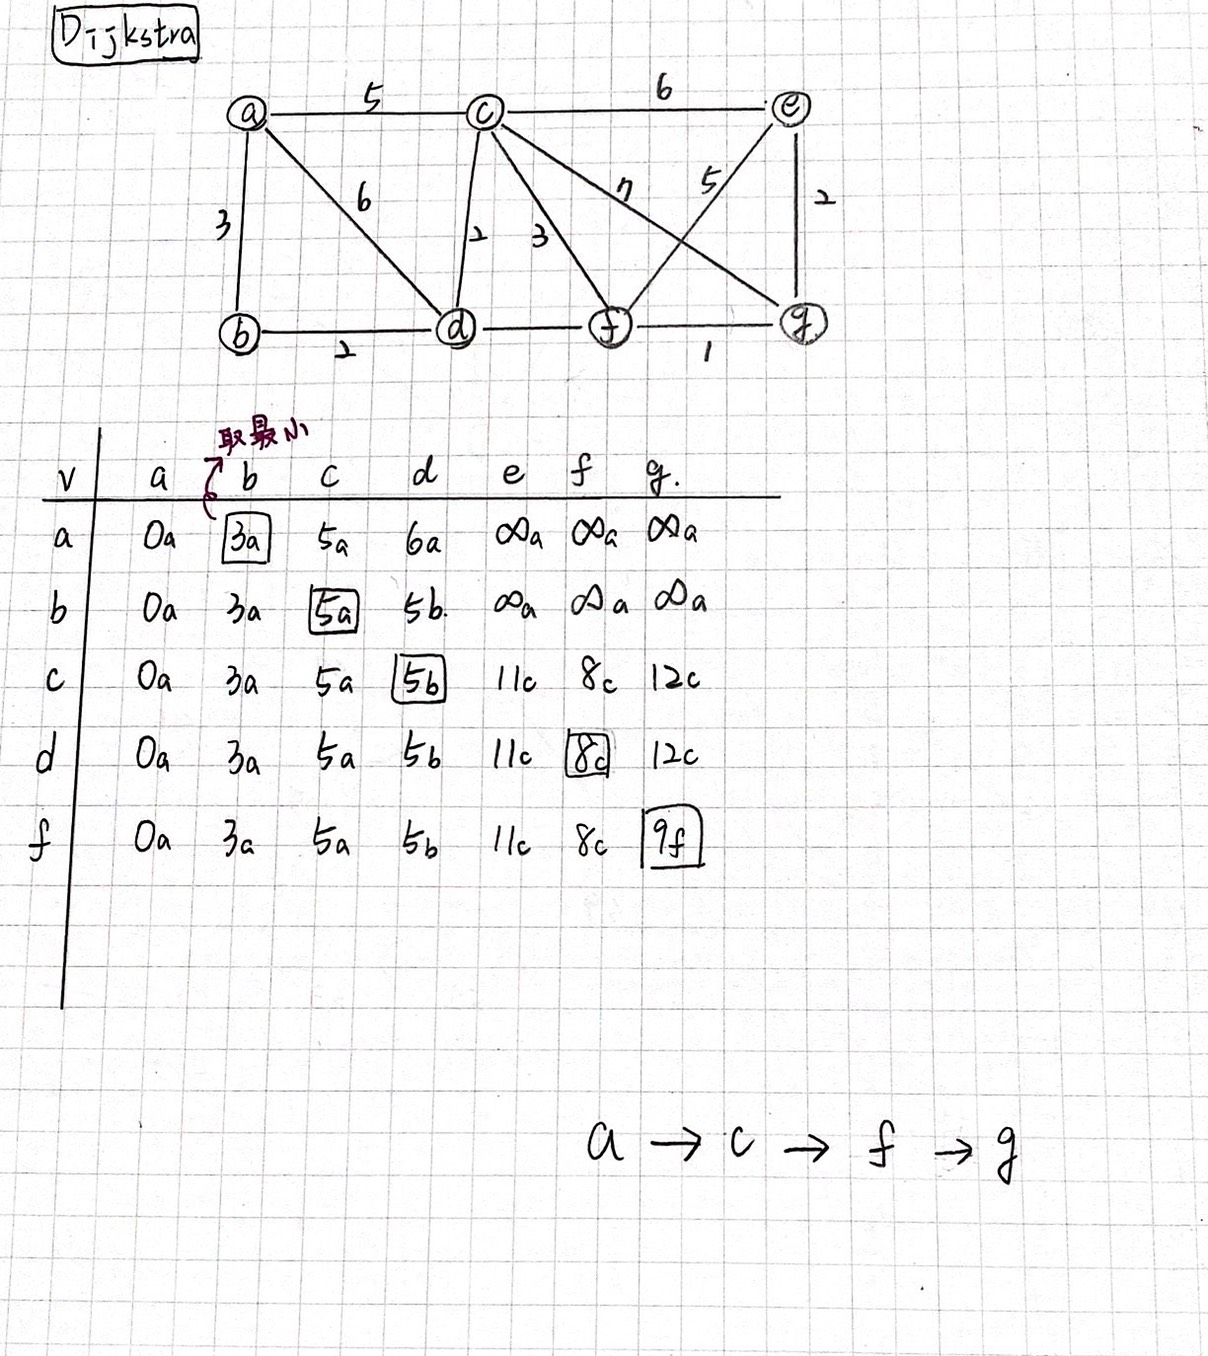 Dijkstra
5
6
a
c
e
3
6
2
3
7
5
2
b
d
f
g
2
1
取最小
v a b c d e f g.
a 0a 3a 5a 6a ∞a ∞a ∞a
b 0a 3a 5a 5b. ∞a ∞a ∞a
c 0a 3a 5a 5b 11c 8c 12c
d 0a 3a 5a 5b 11c 8c 12c
f 0a 3a 5a 5b 11c 8c 9f
a → c → f → g